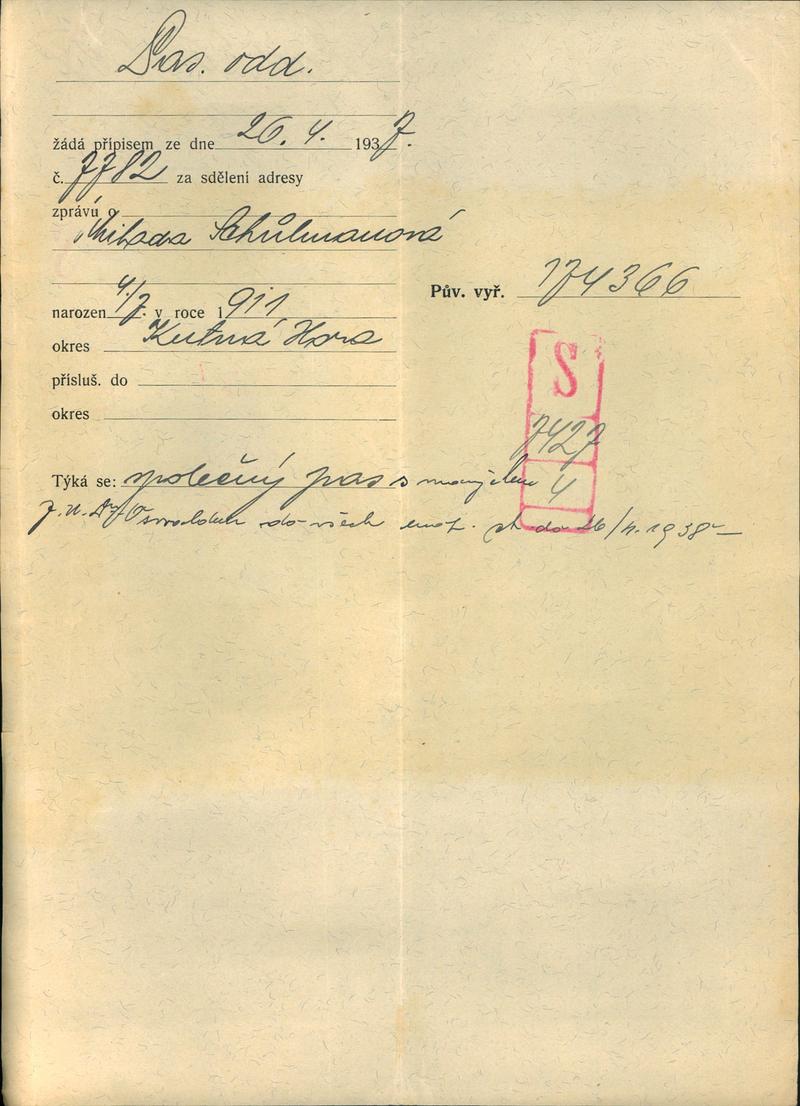 Pas. odd.
žádá přípisem ze dne 26. 4. 1937.
č. 7782 za sdělení adresy
zprávu o
Milada Schülmanová
narozen 4/7. v roce 1911
okres Kutná Hora
přísluš. do
okres
Týká se: společný pas s manželem
J.U.Dr Oswaldem do všech evrop. st do 26/4. 1938
Pův. vyř. 174366
S
7427
4